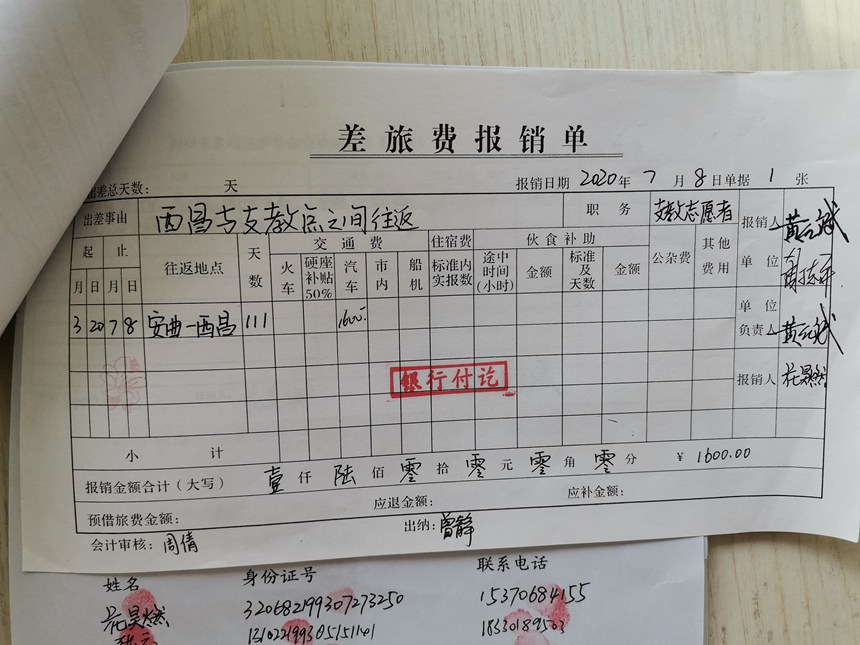 差旅费报销单
出差总天数: 天 报销日期 2020年 7 月 8 日单据 1 张
出差事由 西昌与支教点之间往返 职务 支教志愿者 报销人
起止 往返地点 天数 交通费 住宿费 伙食补助 公杂费 其他费用 单位
月 日 月 日 火车 硬座补贴50% 汽车 市内 船机 标准内实报数 途中时间(小时) 金额 标准及天数 金额
3 20 7 8 安曲—西昌 111 1600- 单位负责人
银行付讫
报销人
小计
报销金额合计(大写) 壹 仟 陆 佰 零 拾 零 元 零 角 零 分 ¥ 1600.00
预借旅费金额: 应退金额: 应补金额:
会计审核: 周倩 出纳: 曾静
姓名 身份证号 联系电话
320682199307273250 15370684155